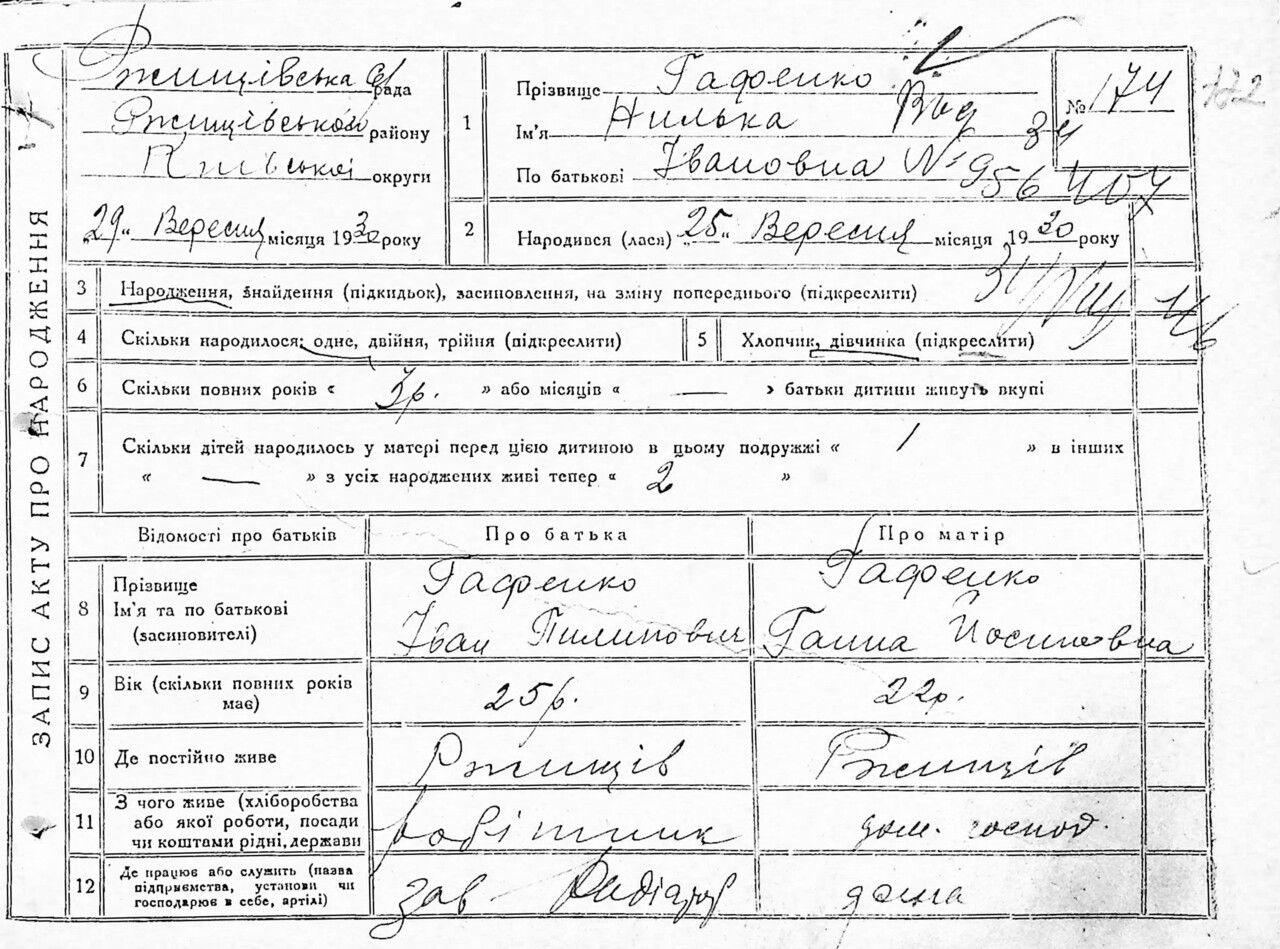 ЗАПИС АКТУ ПРО НАРОДЖЕННЯ
Ржищівська рада
Ржищівської району
Київської округи
„29“ Вересня місяця 1930 року
1
Прізвище Гафенко
Ім'я Нилька
По батькові Івановна
№ 174
172
№ 956407
2
Народився (лася) „25“ Вересня місяця 1930 року
3 Народження, знайдення (підкидьок), засиновлення, на зміну попереднього (підкреслити)
4 Скільки народилося: одне, двійня, трійня (підкреслити)
5 Хлопчик, дівчинка (підкреслити)
6 Скільки повних років « 3р. » або місяців « — » батьки дитини живуть вкупі
7 Скільки дітей народилось у матері перед цією дитиною в цьому подружжі « 1 » в інших
« — » з усіх народжених живі тепер « 2 »
Відомості про батьків Про батька Про матір
8 Прізвище Гафенко Гафенко
Ім'я та по батькові Іван Пилипович Ганна Йосиповна
(засиновителі)
9 Вік (скільки повних років має) 25р. 22р.
10 Де постійно живе Ржищів Ржищів
11 З чого живе (хліборобства
або якої роботи, посади
чи коштами рідні, держави робітник дом. господ.
12 Де працює або служить (назва
підприємства, установи чи
господарює в себе, артілі) зав Радіатор дома